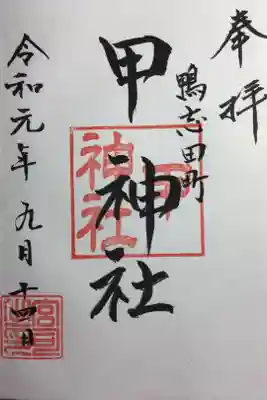 奉拝
鴨志田町
甲神社
令和元年九月十四日